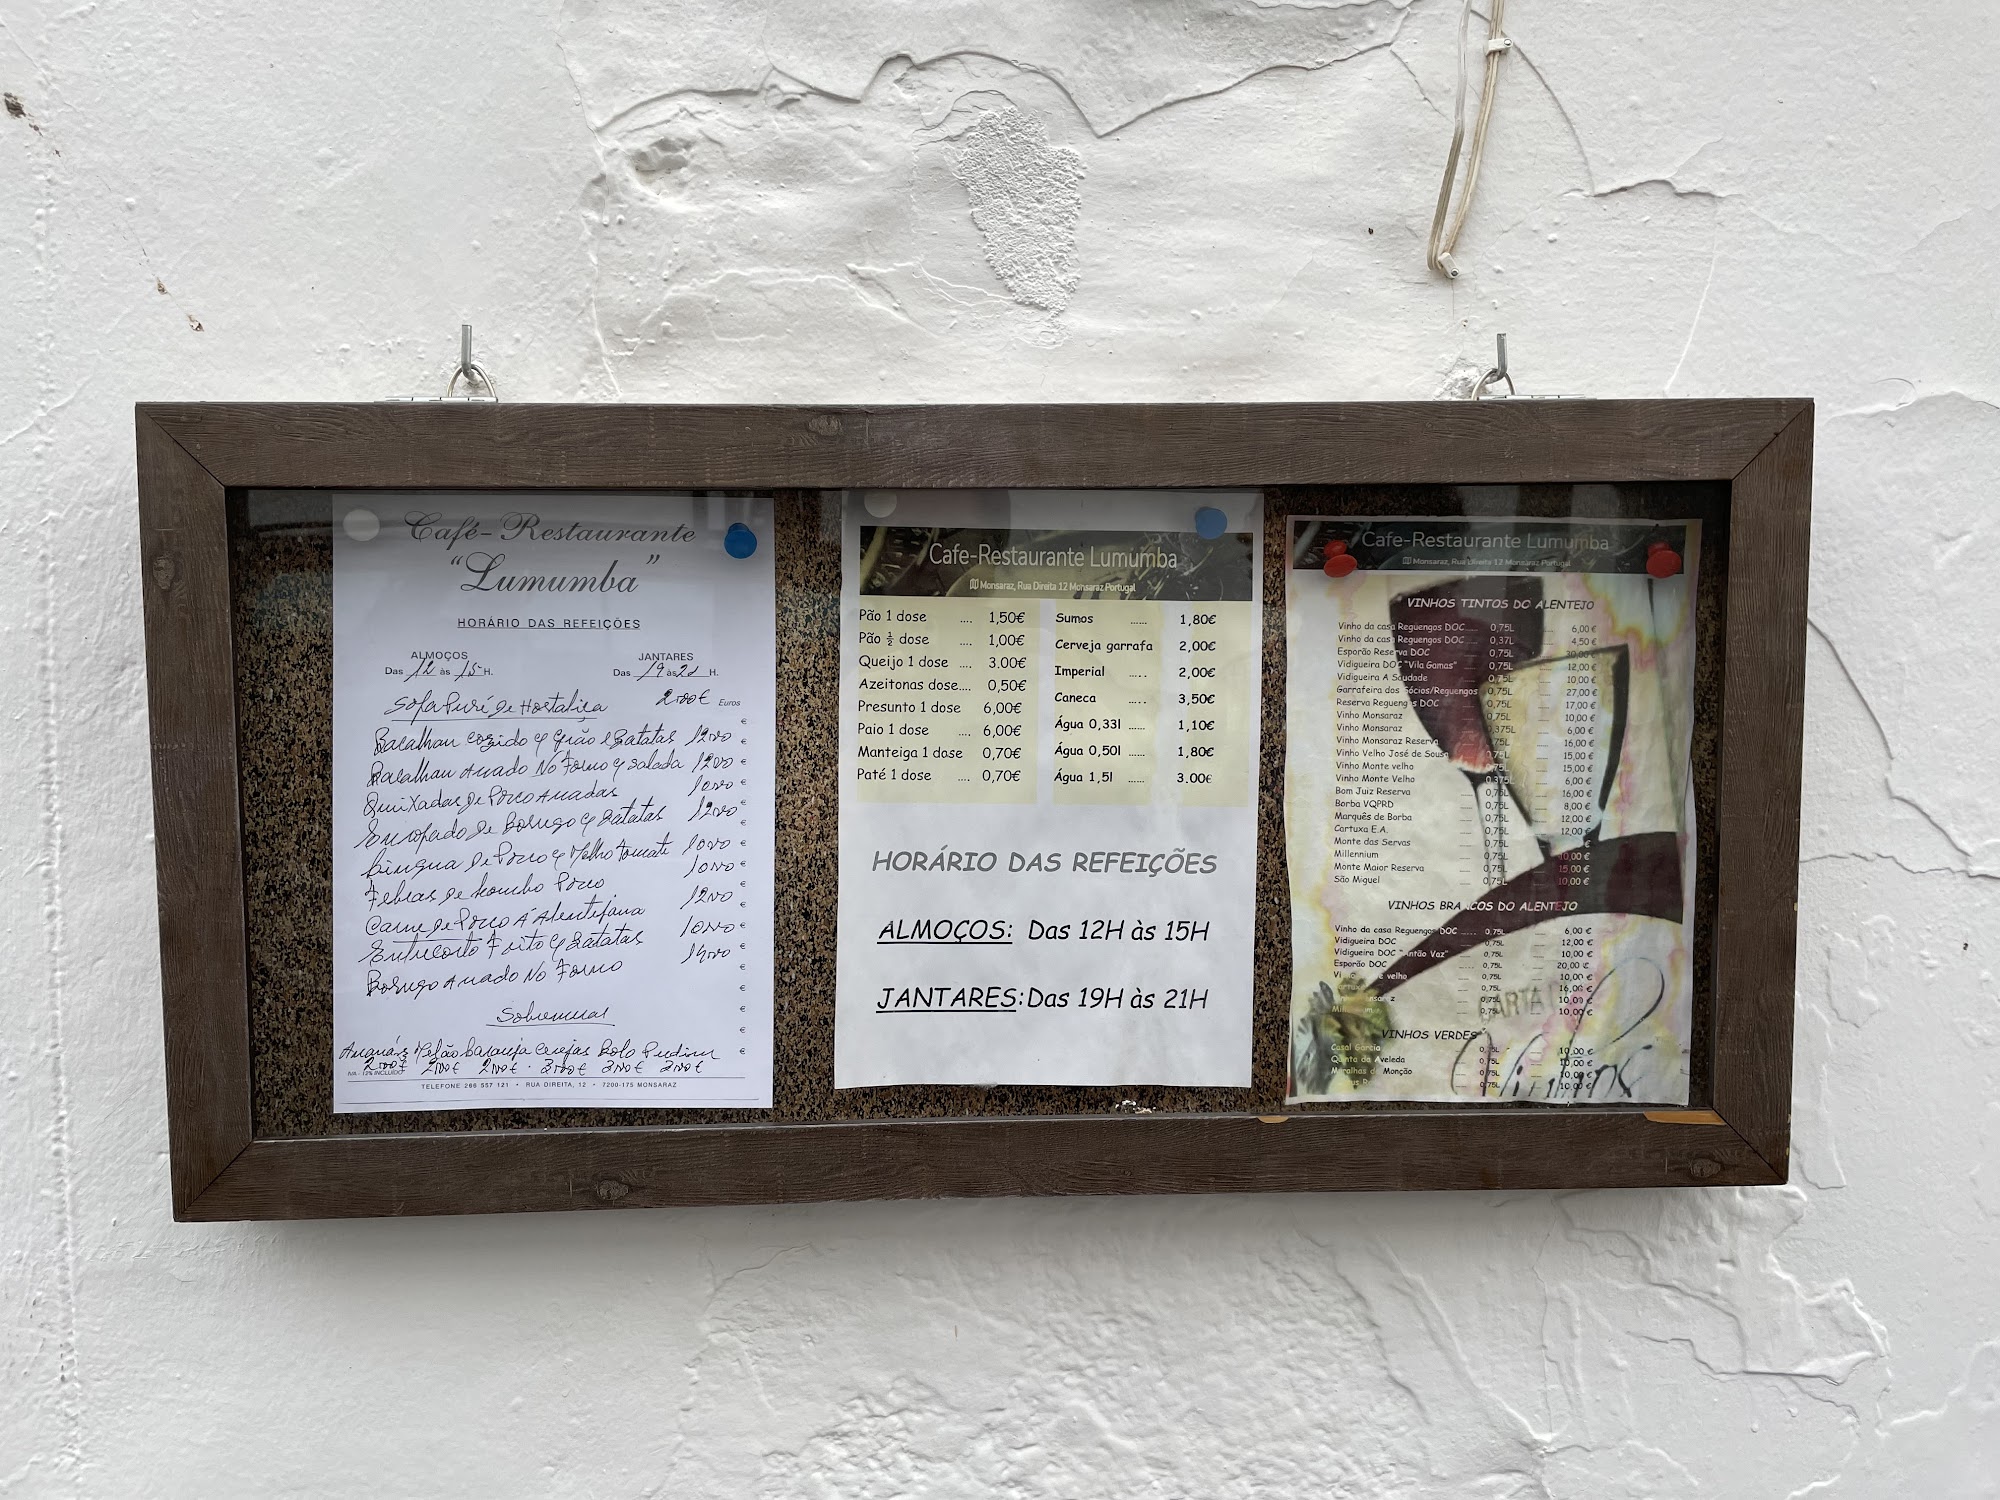 Café-Restaurante
"Lumumba"
HORÁRIO DAS REFEIÇÕES
ALMOÇOS
Das 12 às 15 H.
JANTARES
Das 19 às 21 H.
Sopa Puré de Hortaliça 2.00€ Euros
Bacalhau cozido c/ Grão e Batatas 12.00 €
Bacalhau Assado No Forno c/ Salada 12.00 €
Queixadas de Porco Assadas 10.00 €
Ensopado de Borrego c/ Batatas 12.00 €
Língua de Porco c/ Molho Tomate 10.00 €
Febras de Lombo Porco 10.00 €
Carne de Porco À Alentejana 12.00 €
Entrecosto Frito c/ Batatas 10.00 €
Borrego Assado No Forno 14.00 €
Sobremesas
Ananás Melão Laranja Cerejas Bolo Pudim
2.00€ 2.00€ 2.00€ 3.00€ 3.00€ 3.00€
IVA - 13% INCLUÍDO
TELEFONE 266 557 121 • RUA DIREITA, 12 • 7200-175 MONSARAZ
Cafe-Restaurante Lumumba
Monsaraz, Rua Direita 12 Monsaraz Portugal
Pão 1 dose .... 1,50€
Pão ½ dose .... 1,00€
Queijo 1 dose .... 3.00€
Azeitonas dose.... 0,50€
Presunto 1 dose 6,00€
Paio 1 dose .... 6,00€
Manteiga 1 dose 0,70€
Paté 1 dose .... 0,70€
Sumos ...... 1,80€
Cerveja garrafa 2,00€
Imperial ..... 2,00€
Caneca ..... 3,50€
Água 0,33l ...... 1,10€
Água 0,50l ...... 1,80€
Água 1,5l ...... 3.00€
HORÁRIO DAS REFEIÇÕES
ALMOÇOS: Das 12H às 15H
JANTARES:Das 19H às 21H
Cafe-Restaurante Lumumba
Monsaraz, Rua Direita 12 Monsaraz Portugal
VINHOS TINTOS DO ALENTEJO
Vinho da casa Reguengos DOC 0,75L 6,00 €
Vinho da casa Reguengos DOC 0,37L 4,50 €
Esporão Reserva DOC 0,75L 30,00 €
Vidigueira DOC "Vila Gamas" 0,75L 12,00 €
Vidigueira A Saudade 0,75L 10,00 €
Garrafeira dos Sócios/Reguengos 0,75L 27,00 €
Reserva Reguengos DOC 0,75L 17,00 €
Vinho Monsaraz 0,75L 10,00 €
Vinho Monsaraz 0,375L 6,00 €
Vinho Monsaraz Reserva 0,75L 16,00 €
Vinho Velho José de Sousa 0,75L 15,00 €
Vinho Monte velho 0,75L 15,00 €
Vinho Monte Velho 0,375L 6,00 €
Bom Juiz Reserva 0,75L 16,00 €
Borba VQPRD 0,75L 8,00 €
Marquês de Borba 0,75L 12,00 €
Cartuxa E.A. 0,75L 12,00 €
Monte das Servas 0,75L
Millennium 0,75L 10,00 €
Monte Maior Reserva 0,75L 15,00 €
São Miguel 0,75L 10,00 €
VINHOS BRANCOS DO ALENTEJO
Vinho da casa Reguengos DOC 0,75L 6,00 €
Vidigueira DOC 0,75L 12,00 €
Vidigueira DOC "Antão Vaz" 0,75L 10,00 €
Esporão DOC 0,75L 20,00 €
velho 0,75L 10,00 €
0,75L 16,00 €
0,75L 10,00 €
0,75L 10,00 €
CARTA
Vinhos
VINHOS VERDES
Casal Garcia 0,75L 10,00 €
Quinta da Aveleda 0,75L 10,00 €
Muralhas de Monção 0,75L 10,00 €
0,75L 10,00 €